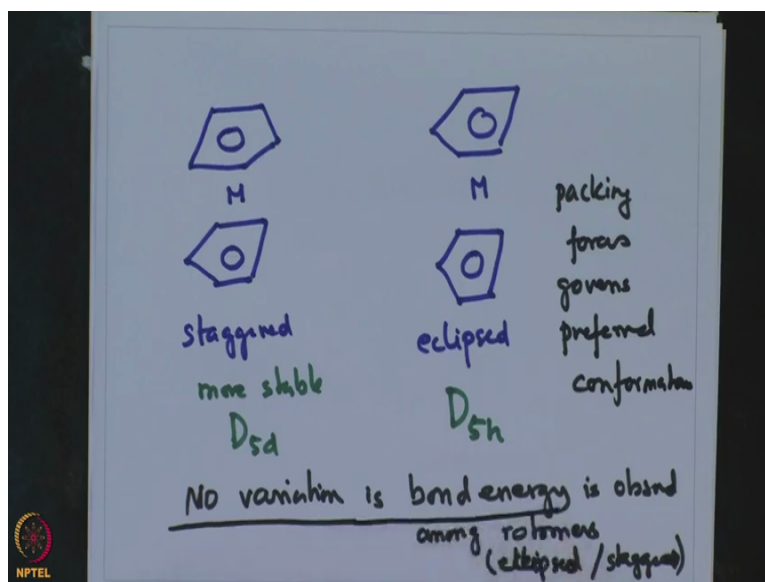 M
M
staggered
eclipsed
more stable
D5d
D5h
packing
forces
governs
preferred
conformations
No variation is bond energy is obsnd
among rotomers
(ecltipsed / staggers)
NPTEL